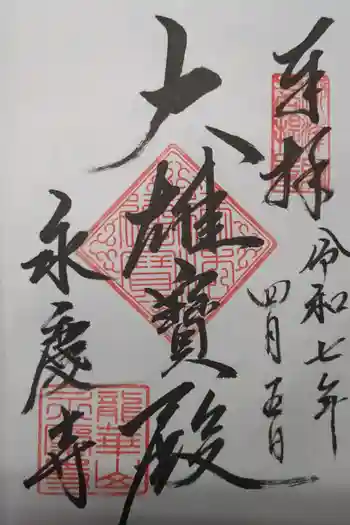 奉拝
令和七年
四月五日
大雄寶殿
永慶寺
龍華山